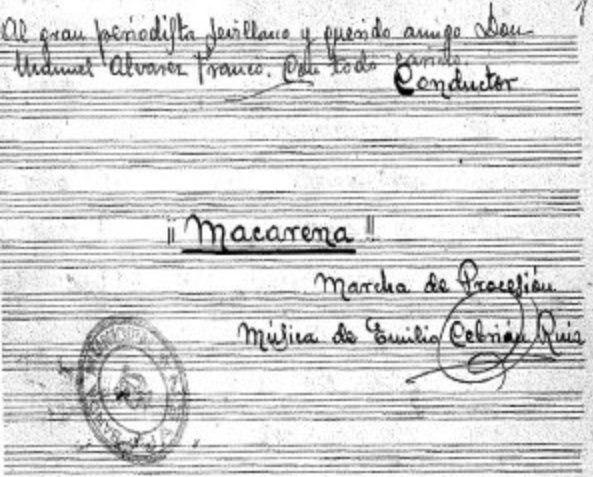 Al gran periodista sevillano y querido amigo Don
Manuel Alvarez Franco. Con todo cariño.
Conductor
¡¡ Macarena !!
Marcha de Procesión
Música de Emilio Cebrián Ruiz
BANDA MUNICIPAL